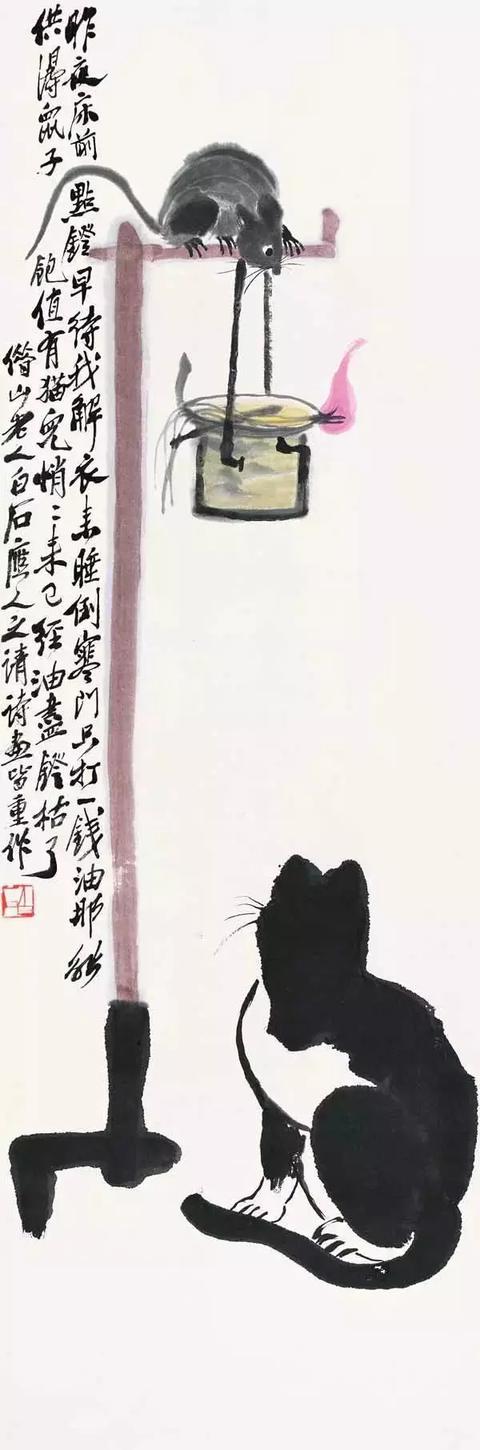 昨夜床前點鐙早待我解衣来睡倒寒門只打一錢油那能
供得鼠子飽值有猫兒悄〻来已經油盡鐙枯了
借山老人白石應人之請詩畫皆重作